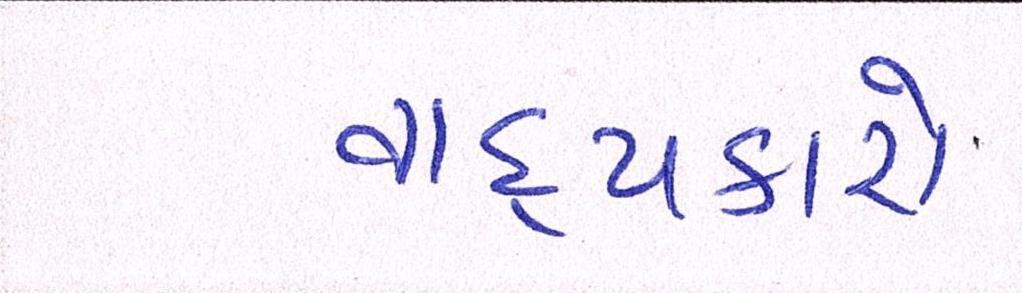 વાદ્યકારો